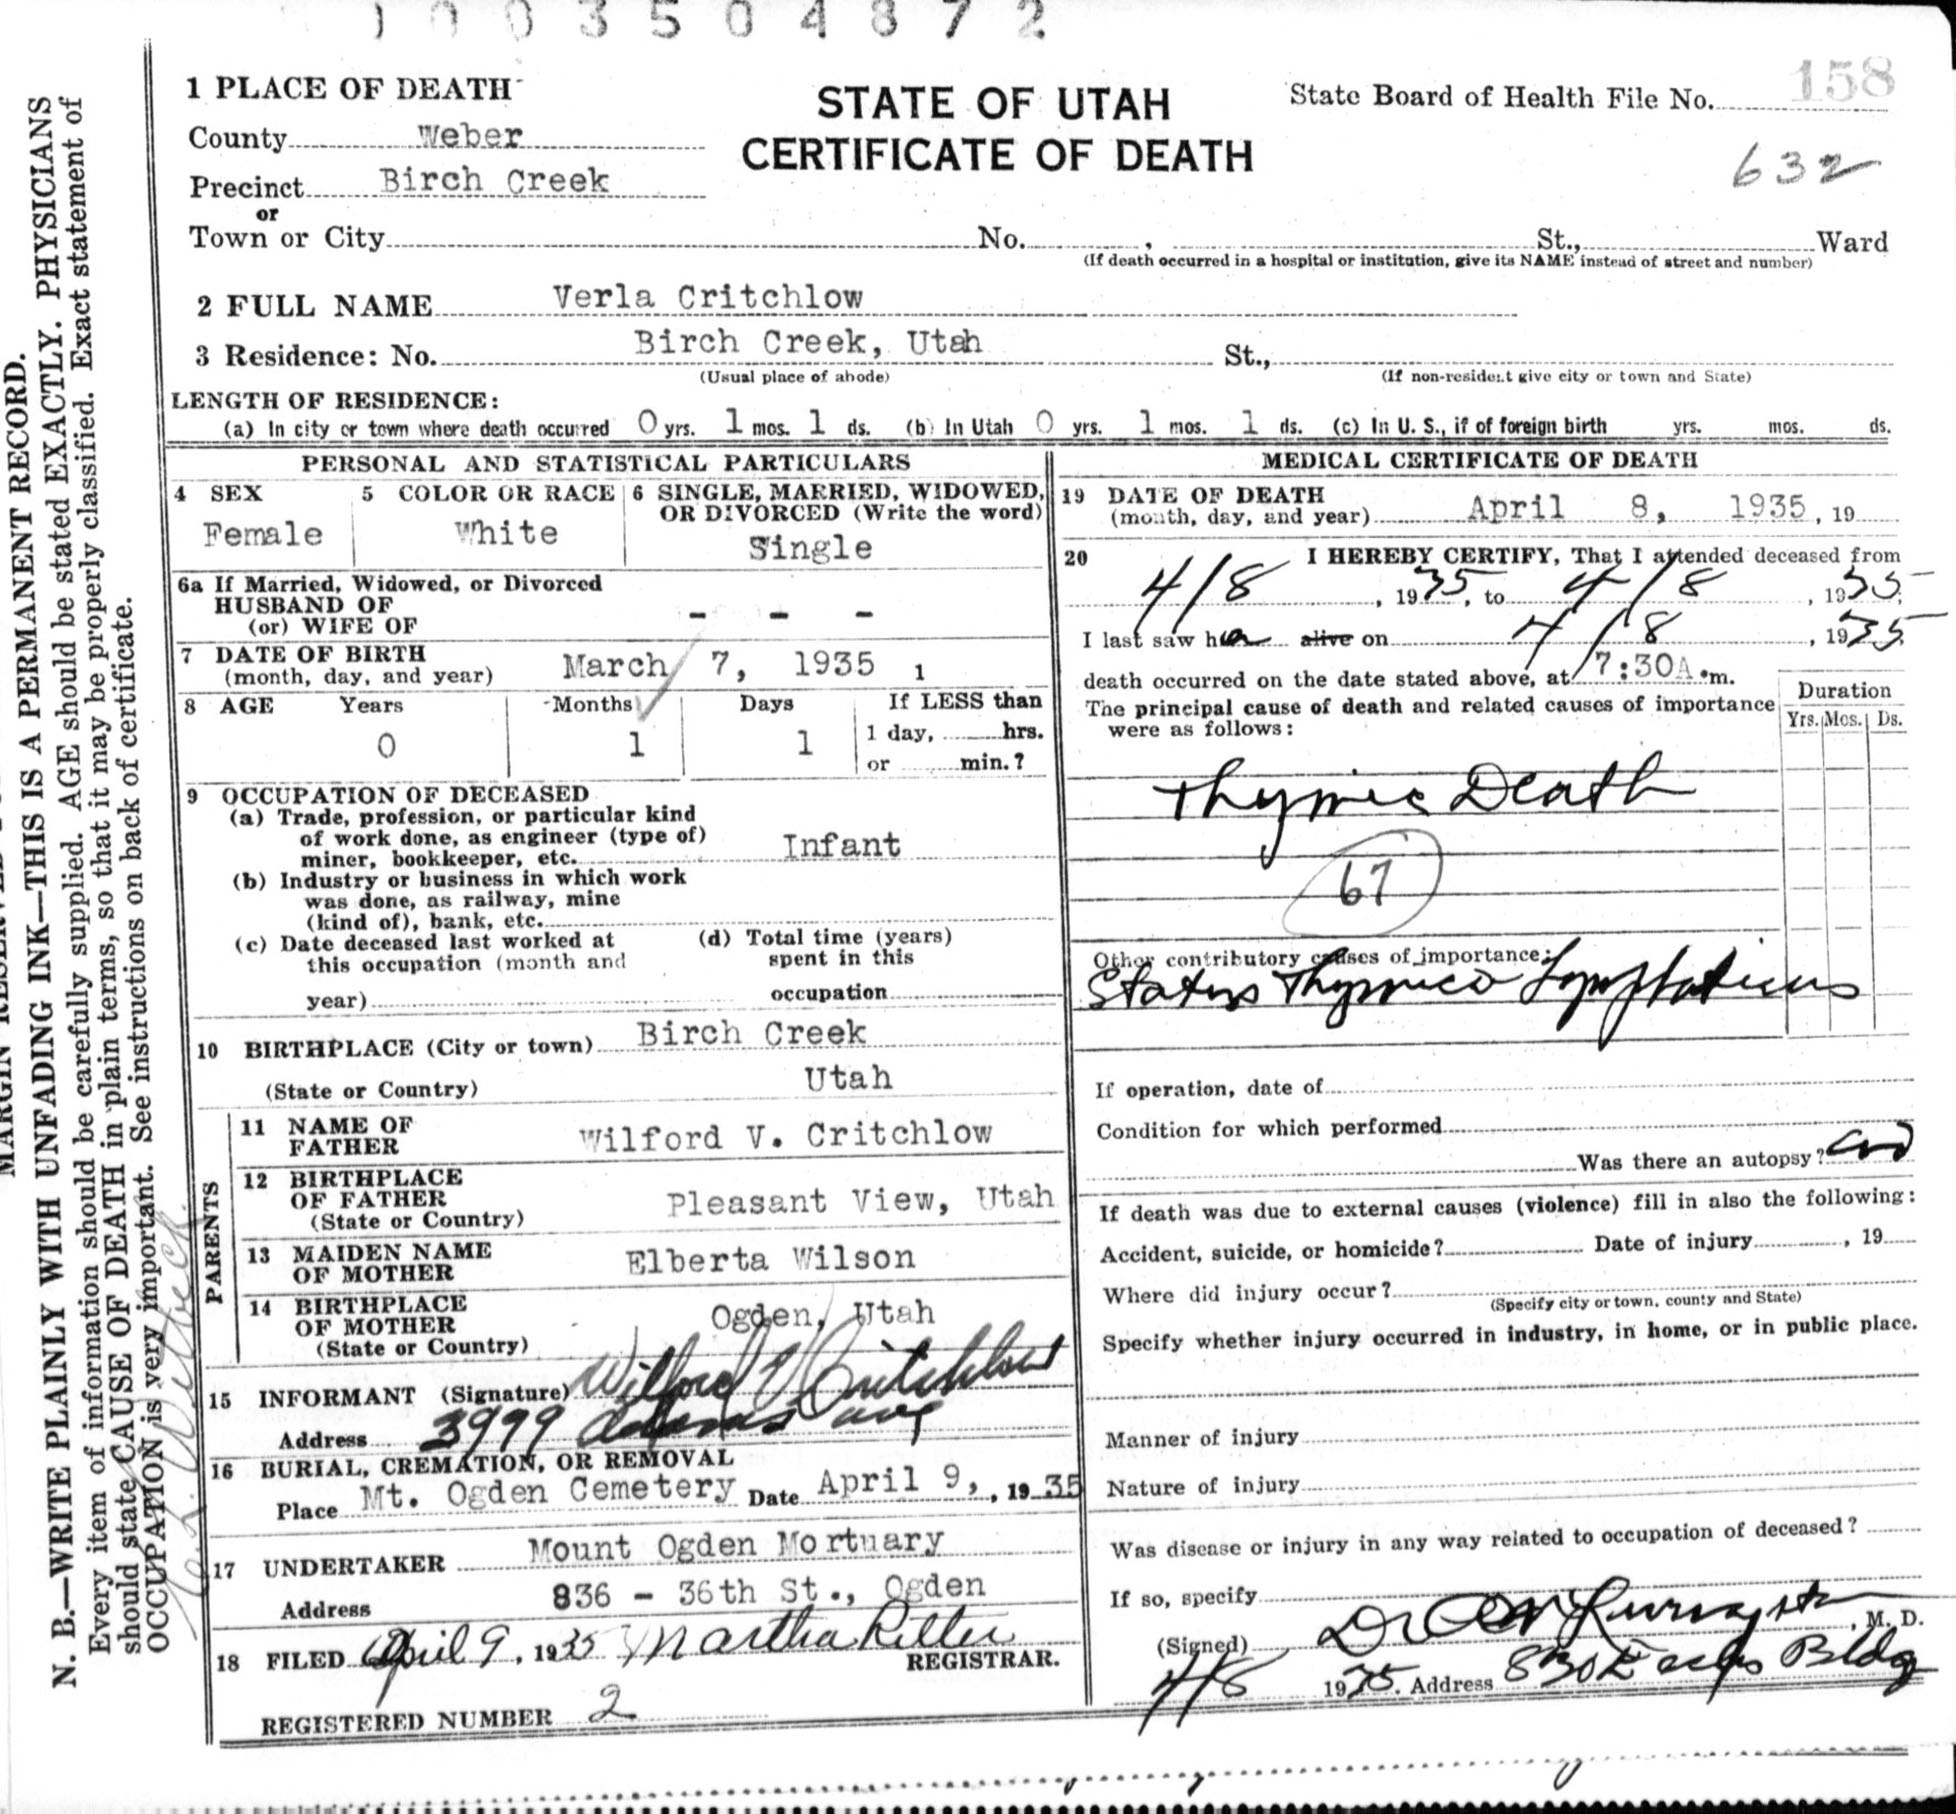 1003504872
1 PLACE OF DEATH
STATE OF UTAH
CERTIFICATE OF DEATH
State Board of Health File No. 158
632
County Weber
Precinct Birch Creek
or
Town or City No. , St., Ward
(If death occurred in a hospital or institution, give its NAME instead of street and number)
2 FULL NAME Verla Critchlow
3 Residence: No. Birch Creek, Utah St.,
(Usual place of abode) (If non-resident give city or town and State)
LENGTH OF RESIDENCE:
(a) In city or town where death occurred 0 yrs. 1 mos. 1 ds. (b) In Utah 0 yrs. 1 mos. 1 ds. (c) In U. S., if of foreign birth yrs. mos. ds.
PERSONAL AND STATISTICAL PARTICULARS
4 SEX 5 COLOR OR RACE 6 SINGLE, MARRIED, WIDOWED,
OR DIVORCED (Write the word)
Female White Single
6a If Married, Widowed, or Divorced
HUSBAND OF
(or) WIFE OF - - -
7 DATE OF BIRTH
(month, day, and year) March 7, 1935 1
8 AGE Years Months Days If LESS than
0 1 1 1 day, hrs.
or min.?
9 OCCUPATION OF DECEASED
(a) Trade, profession, or particular kind
of work done, as engineer (type of)
miner, bookkeeper, etc. Infant
(b) Industry or business in which work
was done, as railway, mine
(kind of), bank, etc.
(c) Date deceased last worked at
this occupation (month and
year)
(d) Total time (years)
spent in this
occupation
10 BIRTHPLACE (City or town) Birch Creek
(State or Country) Utah
PARENTS
11 NAME OF
FATHER Wilford V. Critchlow
12 BIRTHPLACE
OF FATHER
(State or Country) Pleasant View, Utah
13 MAIDEN NAME
OF MOTHER Elberta Wilson
14 BIRTHPLACE
OF MOTHER
(State or Country) Ogden, Utah
15 INFORMANT (Signature) Wilford V Critchlow
Address 3999 Adams ave
16 BURIAL, CREMATION, OR REMOVAL
Place Mt. Ogden Cemetery Date April 9, , 1935
17 UNDERTAKER Mount Ogden Mortuary
Address 836 - 36th St., Ogden
18 FILED April 9, 1935 Martha Ritter
REGISTRAR.
REGISTERED NUMBER 2
MEDICAL CERTIFICATE OF DEATH
19 DATE OF DEATH
(month, day, and year) April 8, 1935, 19
20 I HEREBY CERTIFY, That I attended deceased from
4/8, 1935, to 4/8, 1935
I last saw her alive on 4/8, 1935
death occurred on the date stated above, at 7:30A.m.
The principal cause of death and related causes of importance
were as follows:
Duration
Yrs. Mos. Ds.
Thymic Death
67
Other contributory causes of importance:
Status Thymico Lymphaticus
If operation, date of
Condition for which performed
Was there an autopsy?
If death was due to external causes (violence) fill in also the following:
Accident, suicide, or homicide? Date of injury , 19
Where did injury occur?
(Specify city or town, county and State)
Specify whether injury occurred in industry, in home, or in public place.
Manner of injury
Nature of injury
Was disease or injury in any way related to occupation of deceased?
If so, specify
(Signed) Dr , M. D.
4/8 1935. Address 830 Eccles Bldg
N. B.—WRITE PLAINLY WITH UNFADING INK—THIS IS A PERMANENT RECORD.
Every item of information should be carefully supplied. AGE should be stated EXACTLY. PHYSICIANS
should state CAUSE OF DEATH in plain terms, so that it may be properly classified. Exact statement of
OCCUPATION is very important. See instructions on back of certificate.